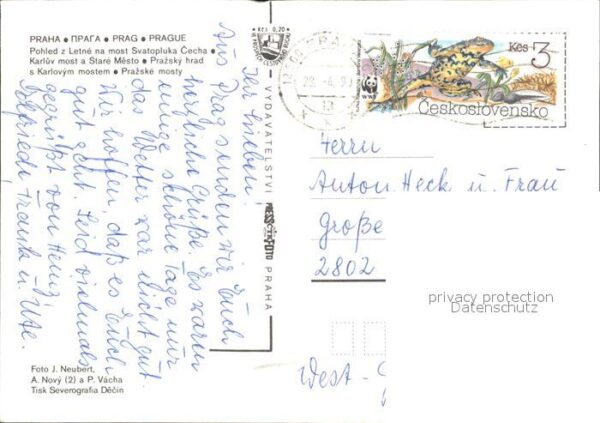 PRAHA • ПРАГА • PRAG • PRAGUE
Pohled z Letné na most Svatopluka Čecha •
Karlův most a Staré Město • Pražský hrad
s Karlovým mostem • Pražské mosty
Ihr Lieben!
Aus Prag senden wir Euch
herzliche Grüße. Es waren
einige schöne Tage nur
das Wetter war nicht gut.
Wir hoffen, daß es Euch
gut geht. Seid vielmals
gegrüßt von Heinz,
Elfriede, Frank u. Ute.
Foto J. Neubert,
A. Nový (2) a P. Vácha
Tisk Severografia Děčín
Kčs 0,20
VYDAVATELSTVÍ PRESSFOTO PRAHA
Kčs 3
WWF
Československo
Herrn
Anton Heck u. Frau
Große
2802
privacy protection
Datenschutz
West-